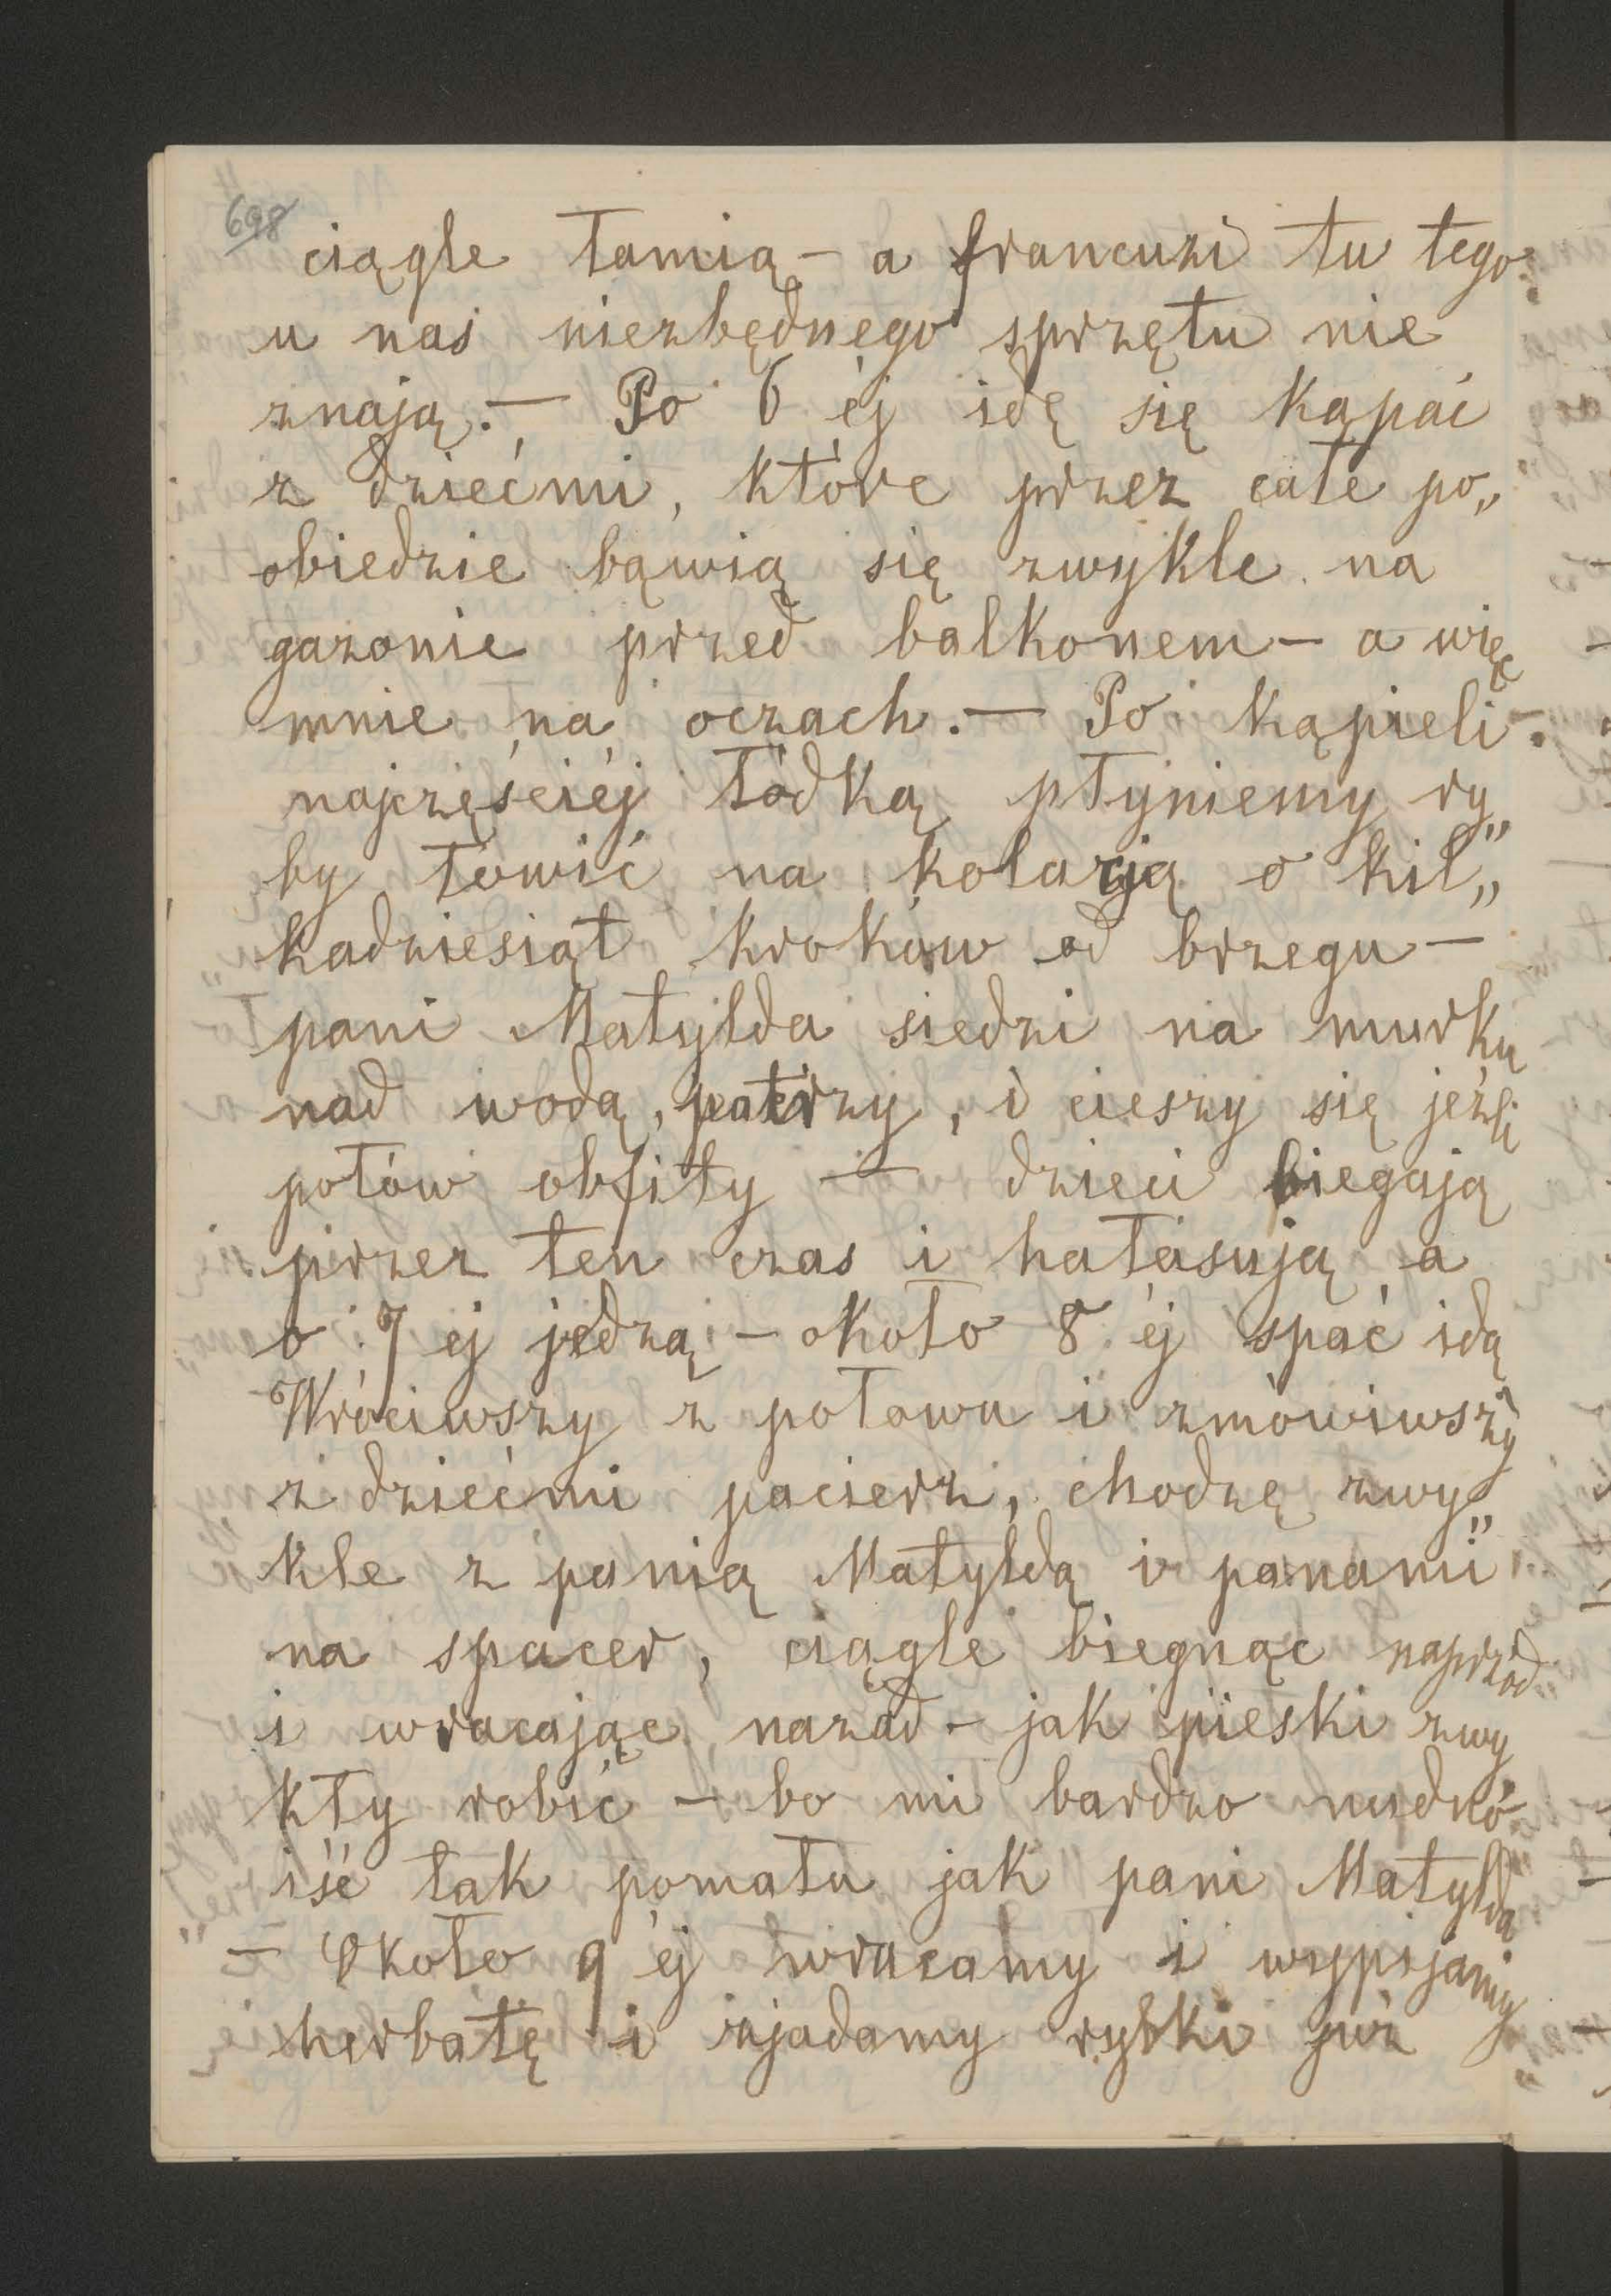 698
ciągle łamią – a francuzi tu tego
u nas niezbędnego sprzętu nie
znają. – Po 6 éj idę się kąpać
z dziećmi, które przez całe po„
obiedzie bąwią się zwykle na
gazonie przed balkonem – a więc
mnie na oczach. – Po kąpieli
najczęściéj łódką płyniemy ry„
by łowić na kolacją o kil„
kadziesiąt kroków od brzegu –
pani Matylda siedzi na murku
nad wodą, patrzy, i cieszy się jeźli
połów obfity – dzieci biegają
przez ten czas i hałasują a
o 7 ej jedzą – około 8 éj spać idą
Wróciwszy z połowu i zmówiwszy
z dziećmi pacierz, chodzę zwy„
kle z panią Matyldą i panami
na spacer, ciągle biegnąc naprzód
i wracając nazad – jak pieski zwy
kły robić – bo mi bardzo nudno
iść tak pomału jak pani Matylda
– Około 9 éj wracamy i wypijamy
herbatę i zjadamy rybki już